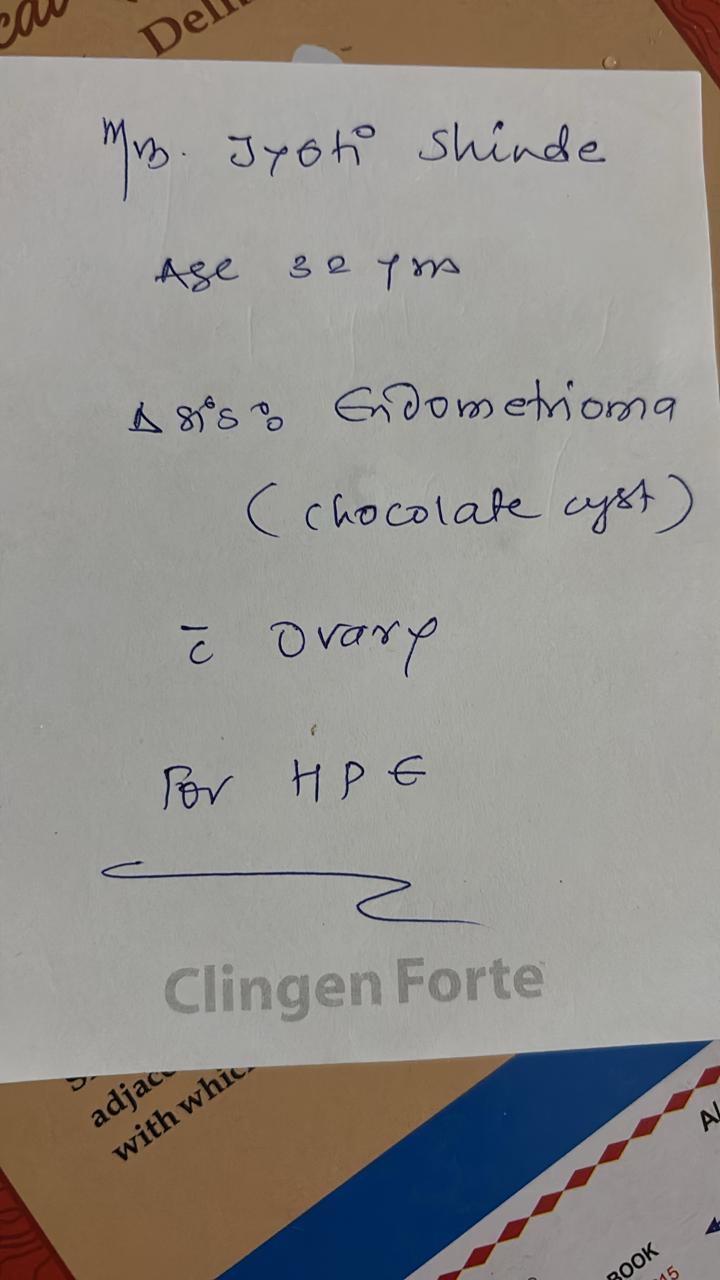 Deli
Mrs. Jyoti Shinde
Age 32 yrs
Δsis: Endometrioma
(chocolate cyst)
c̄ ovary
For HPE
Clingen Forte
adjac
with whic
BOOK
15